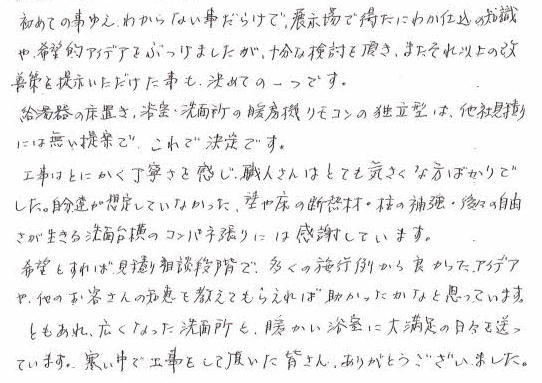 初めての事ゆえ、わからない事だらけで、展示場で得たにわか仕込の知識
や、希望的アイデアをぶつけましたが、十分な検討を頂き、またそれ以上の改
善策を提示いただけた事も、決めての一つです。
給湯器の床置き、浴室・洗面所の暖房機リモコンの独立型は、他社見積
には無い提案で、これで決定です。
工事はとにかく丁寧さを感じ、職人さんはとても気さくな方ばかりで
した。自分達が想定していなかった、壁や床の断熱材・柱の補強・後々の自由
さが生きる洗面台横のコンパネ張りには感謝しています。
希望とすれば、見積り相談段階で、多くの施行例から良かったアイデア
や、他のお客さんの知恵を教えてもらえれば助かったかなと思っています。
ともあれ、広くなった洗面所と、暖かい浴室に大満足の日々を送っ
ています。寒い中で工事をして頂いた皆さん、ありがとうございました。